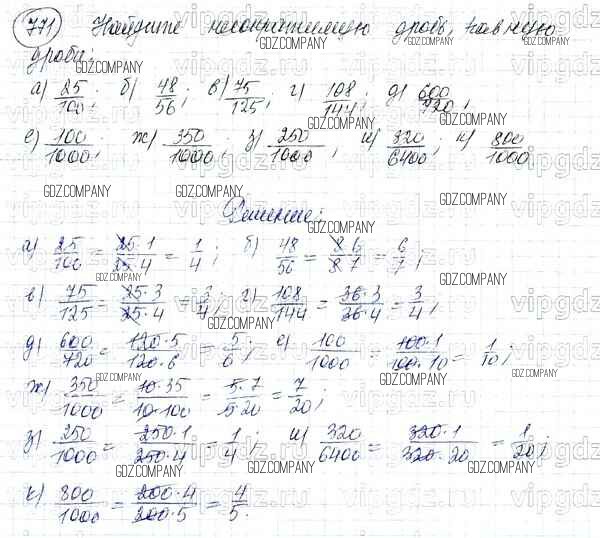 771 Найдите несократимую дробь, равную
дроби:
а) 25/100; б) 48/56; в) 75/125; г) 108/144; д) 600/720;
е) 100/1000; ж) 350/1000; з) 250/1000; и) 320/6400; к) 800/1000
Решение:
а) 25/100 = 25·1/25·4 = 1/4; б) 48/56 = 8·6/8·7 = 6/7;
в) 75/125 = 25·3/25·4 = 3/4; г) 108/144 = 36·3/36·4 = 3/4;
д) 600/720 = 120·5/120·6 = 5/6; е) 100/1000 = 100·1/100·10 = 1/10;
ж) 350/1000 = 10·35/10·100 = 5·7/5·20 = 7/20;
з) 250/1000 = 250·1/250·4 = 1/4; и) 320/6400 = 320·1/320·20 = 1/20;
к) 800/1000 = 200·4/200·5 = 4/5.
GDZ.COMPANY
vipgdz.ru